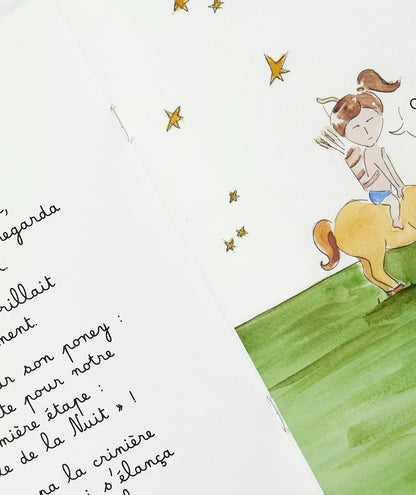 regarda
rillait
ment.
ur son poney :
te pour notre
mière étape :
e de la Nuit » !
na la crinière
i s'élança